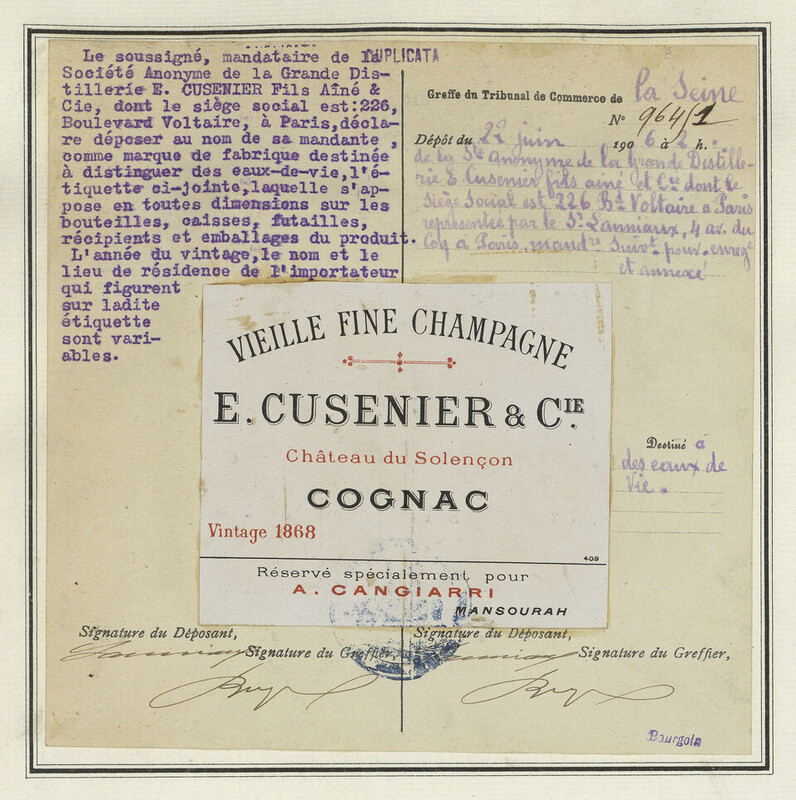 DUPLICATA
Le soussigné, mandataire de la
Société Anonyme de la Grande Dis-
tillerie E. CUSENIER Fils Aîné &
Cie, dont le siège social est:226,
Boulevard Voltaire, à Paris,décla-
re déposer au nom de sa mandante ,
comme marque de fabrique destinée
à distinguer des eaux-de-vie,l'é-
tiquette ci-jointe,laquelle s'ap-
pose en toutes dimensions sur les
bouteilles, caisses, futailles,
récipients et emballages du produit.
L'année du vintage,le nom et le
lieu de résidence de l'importateur
qui figurent
sur ladite
étiquette
sont vari-
ables.
Greffe du Tribunal de Commerce de la Seine
N° 964/1
Dépôt du 22 juin 1906 à 2 h.
de la Sté Anonyme de la Grande Distille-
rie E. Cusenier fils ainé et Cie dont le
Siège Social est 226 Bd Voltaire a Paris
représentée par le Sr Lanniaux, 4 av. du
Coq à Paris, mandre Suivt pouv. enregé
et annexé
VIEILLE FINE CHAMPAGNE
E. CUSENIER & CIE.
Château du Solençon
COGNAC
Vintage 1868
409
Réservé spécialement pour
A. CANGIARRI
MANSOURAH
Destiné à
des eaux de
Vie.
Signature du Déposant,
Signature du Greffier,
Signature du Déposant,
Signature du Greffier,
Bourgoin